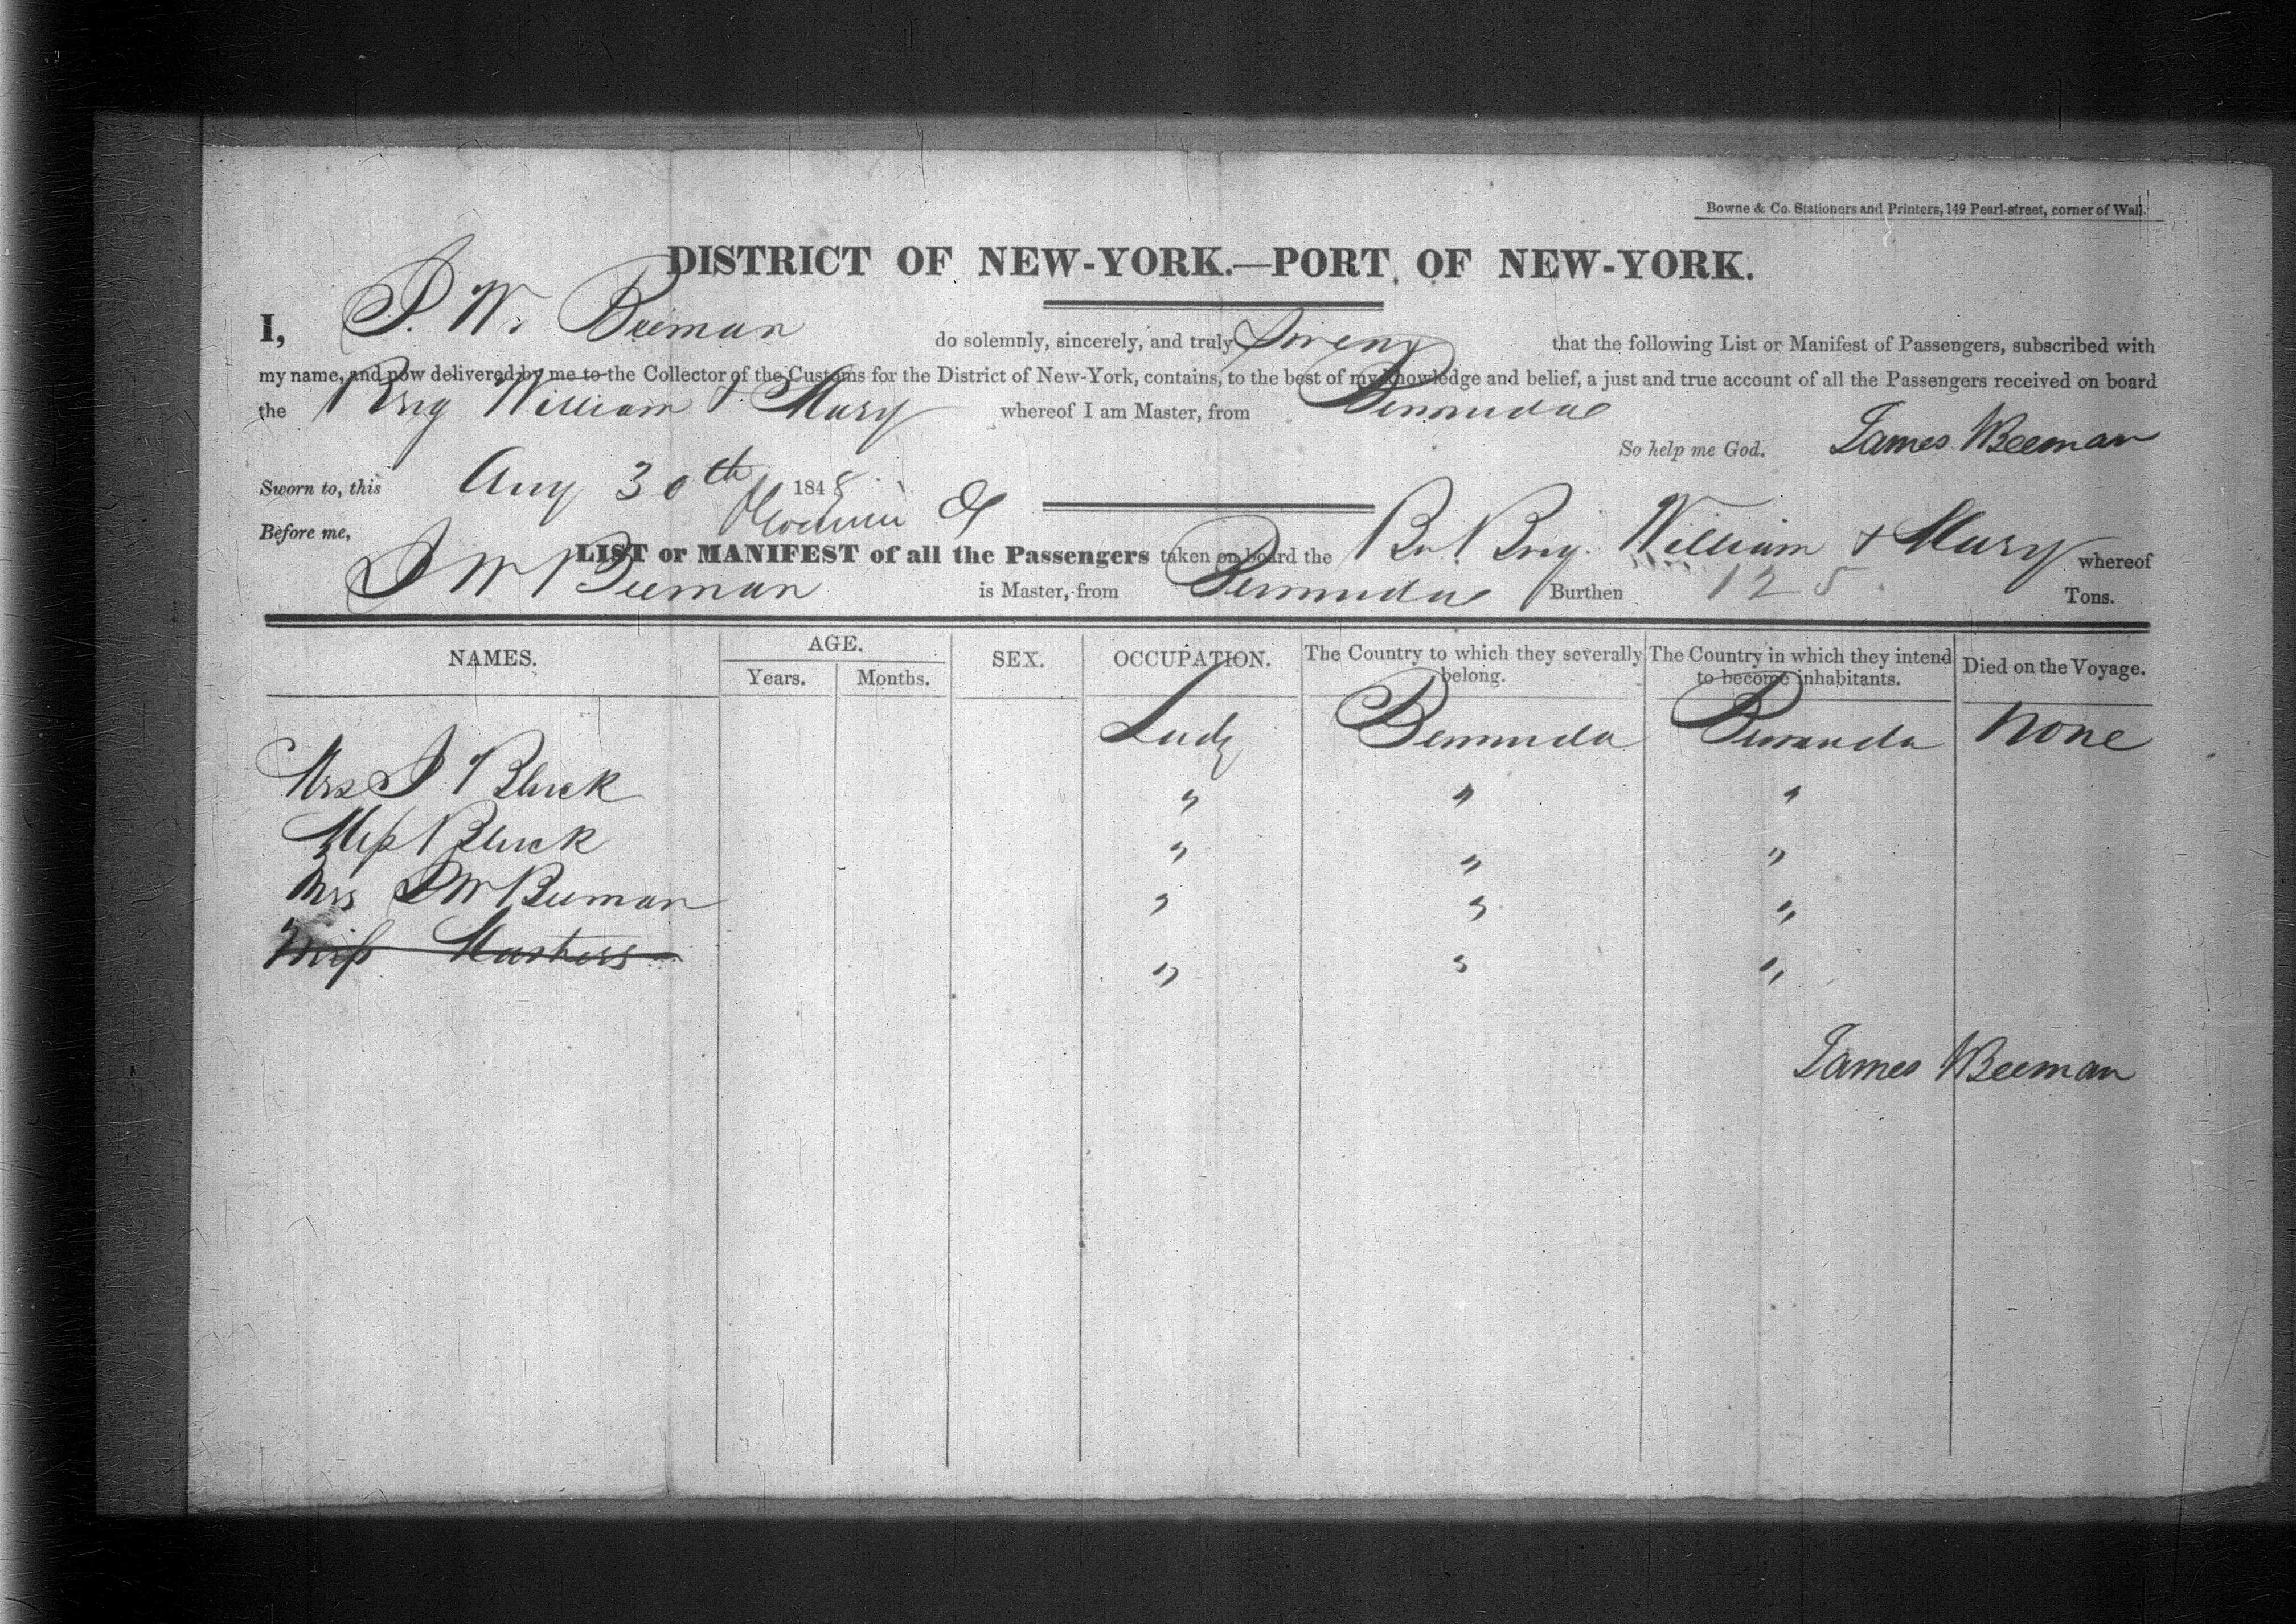 Bowne & Co. Stationers and Printers, 149 Pearl-street, corner of Wall.
DISTRICT OF NEW-YORK.—PORT OF NEW-YORK.
I, J. W. Beeman do solemnly, sincerely, and truly swear that the following List or Manifest of Passengers, subscribed with
my name, and now delivered by me to the Collector of the Customs for the District of New-York, contains, to the best of my knowledge and belief, a just and true account of all the Passengers received on board
the Brig William & Mary whereof I am Master, from Bermuda
So help me God. James Beeman
Sworn to, this Aug 30th 1848
Before me,
LIST or MANIFEST of all the Passengers taken on board the Br. Brig. William & Mary whereof
J W Beeman is Master, from Bermuda Burthen 125. Tons.
NAMES. AGE. SEX. OCCUPATION. The Country to which they severally belong. The Country in which they intend to become inhabitants. Died on the Voyage.
Years. Months.
Lady Bermuda Bermuda None
Mrs J. Bluck " " "
Miss Bluck " " "
Mrs J W Beeman " " "
Miss Masters " " "
James Beeman